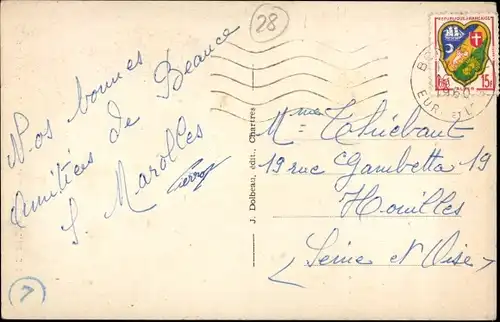 28
Nos bonnes
Amitiés de Beauce
S. Marolles
Pierrot
7
J. Dolbeau, édit., Chartres
REPUBLIQUE FRANÇAISE
15F
1960
EUR
Mme Thiébaut
19 rue Gambetta 19
Houilles
(Seine et Oise)